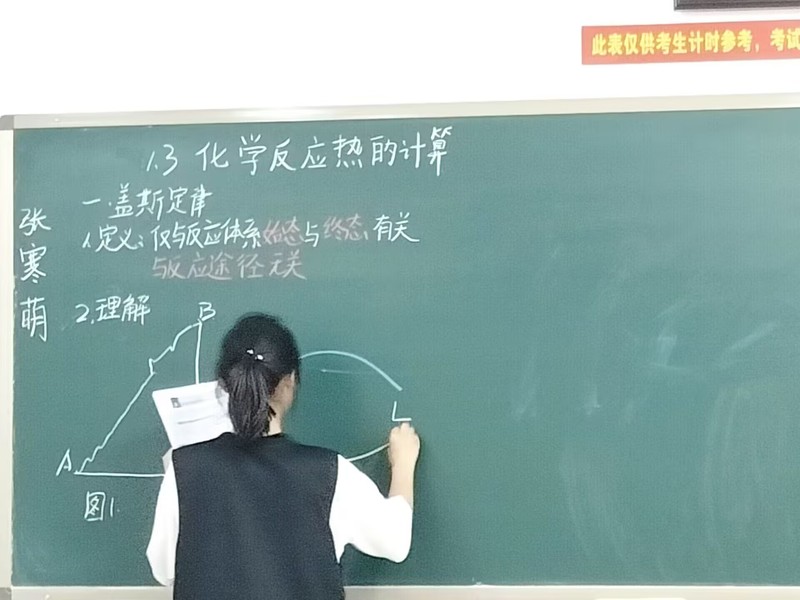 此表仅供考生计时参考，考试
1.3 化学反应热的计算
张寒萌
一.盖斯定律
1.定义：仅与反应体系始态与终态有关
与反应途径无关
2.理解
B
A
L
图1.